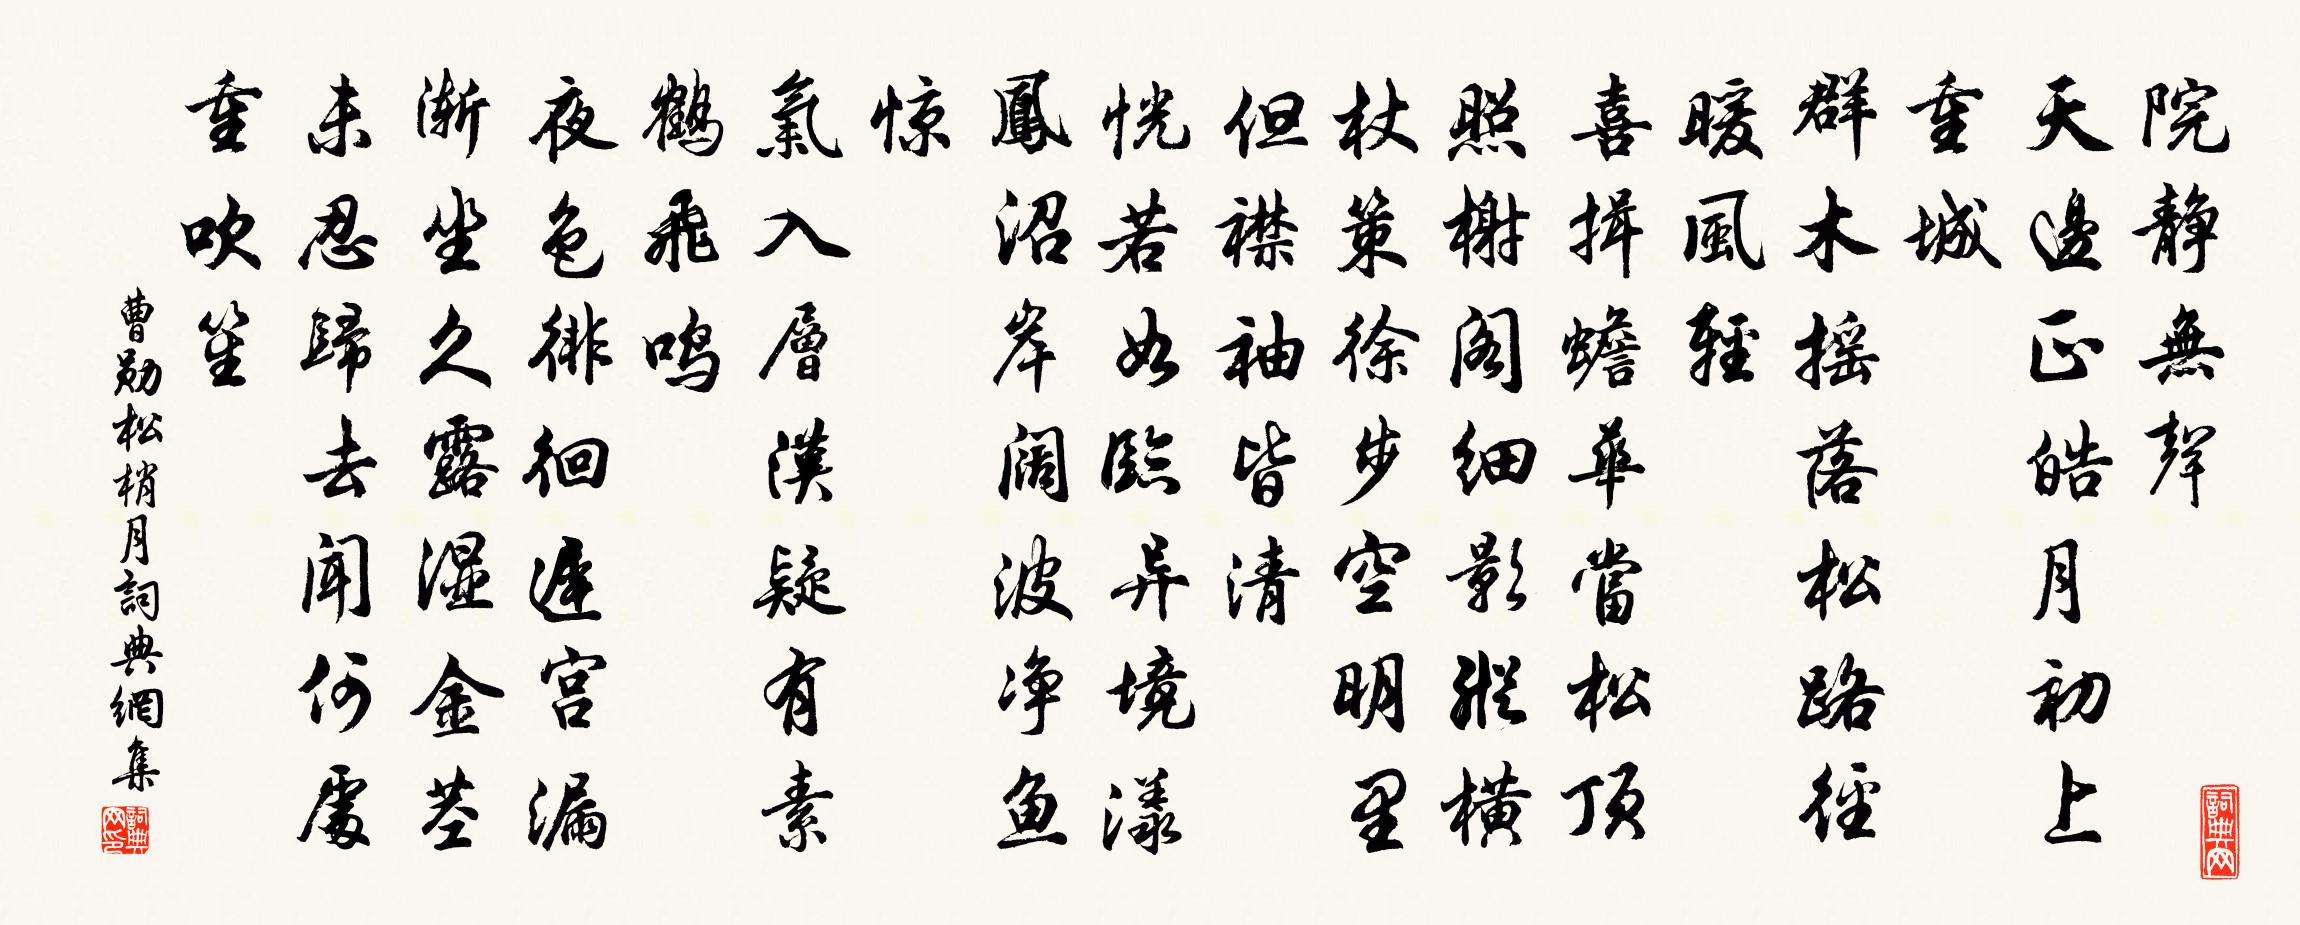 院静無聲
天邊正皓月初上
重城
群木摇落松路徑
暖風輕
喜揖蟾華當松頂
照榭閣細影縱横
杖策徐步空明里
但襟袖皆清
恍若如臨异境漾
鳳沼岸阔波净魚
惊
氣入層漢疑有素
鶴飛鳴
夜色徘徊遲宫漏
漸坐久露濕金茎
未忍歸去闻何處
重吹笙
曹勋松梢月詞典網集
詞典网
詞典网印